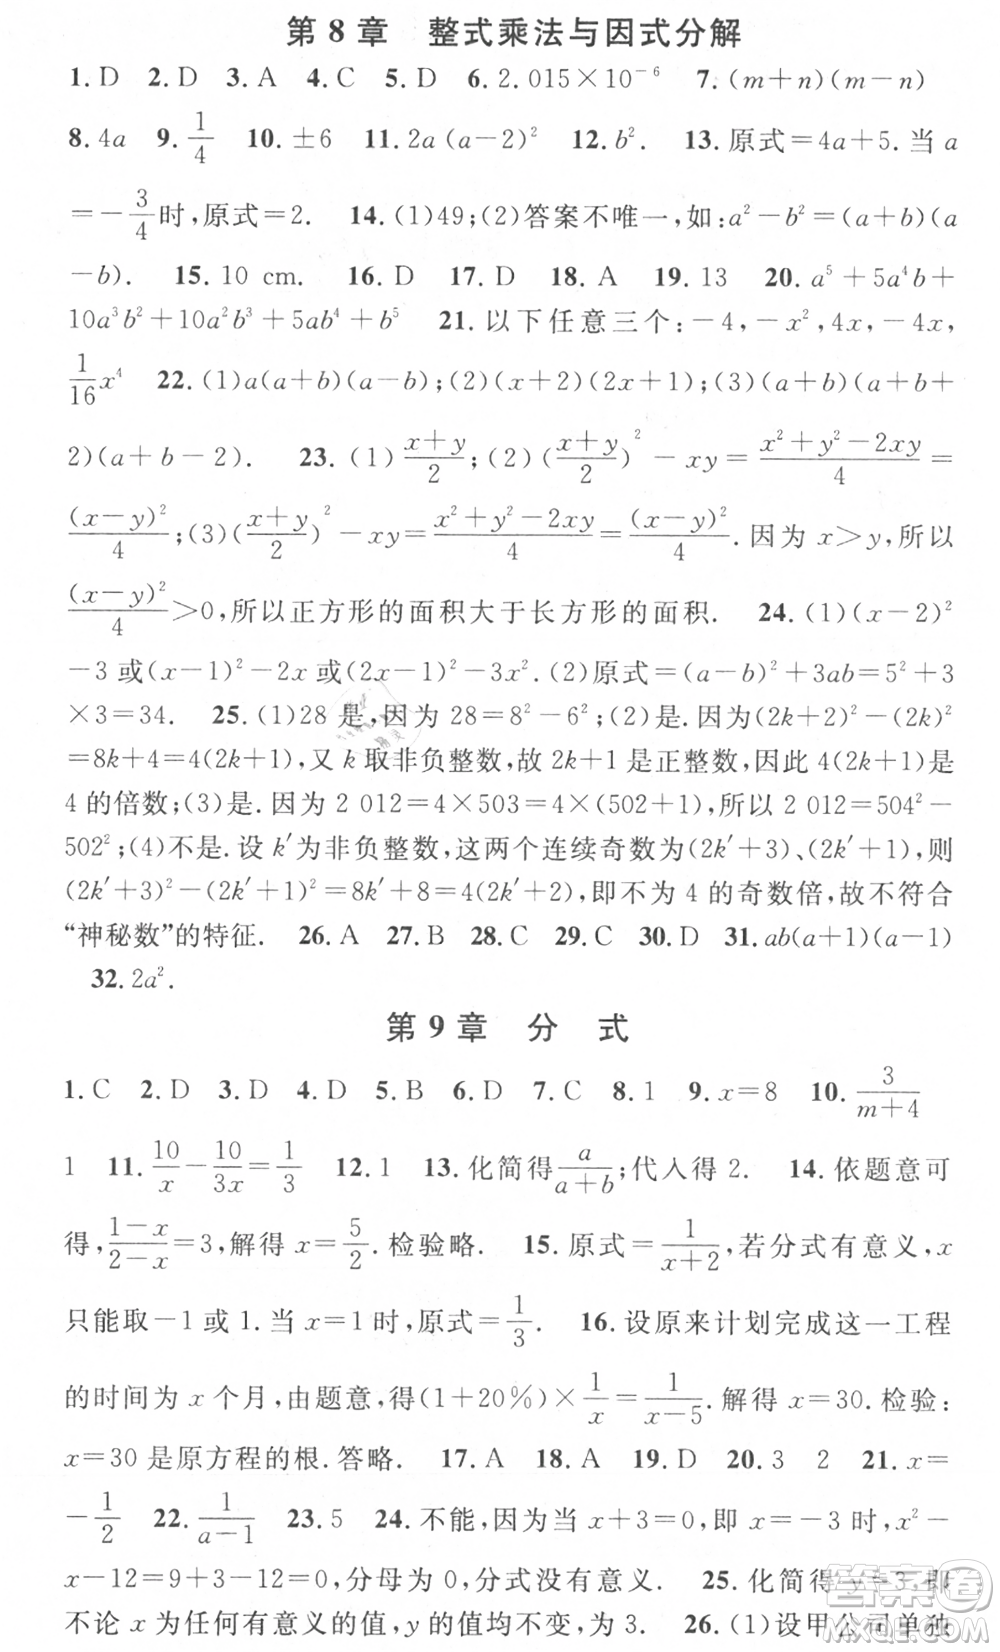 第 8 章　整式乘法与因式分解
1. D　2. D　3. A　4. C　5. D　6. 2.015×10⁻⁶　7. (m+n)(m−n)
8. 4a　9. 1/4　10. ±6　11. 2a(a−2)²　12. b².　13. 原式=4a+5. 当 a
=−3/4时,原式=2.　14. (1)49;(2)答案不唯一,如:a²−b²=(a+b)(a
−b).　15. 10 cm.　16. D　17. D　18. A　19. 13　20. a⁵+5a⁴b+
10a³b²+10a²b³+5ab⁴+b⁵　21. 以下任意三个:−4,−x²,4x,−4x,
1/16 x⁴　22. (1)a(a+b)(a−b);(2)(x+2)(2x+1);(3)(a+b)(a+b+
2)(a+b−2).　23. (1)(x+y)/2;(2)((x+y)/2)²−xy=(x²+y²−2xy)/4=
(x−y)²/4;(3)((x+y)/2)²−xy=(x²+y²−2xy)/4=(x−y)²/4.因为 x>y,所以
(x−y)²/4>0,所以正方形的面积大于长方形的面积.　24. (1)(x−2)²
−3或(x−1)²−2x或(2x−1)²−3x².(2)原式=(a−b)²+3ab=5²+3
×3=34.　25. (1)28 是,因为 28=8²−6²;(2)是.(2k+2)²−(2k)²
=8k+4=4(2k+1),又 k 取非负整数,故 2k+1 是正整数,因此 4(2k+1)是
4 的倍数;(3)是.因为 2 012=4×503=4×(502+1),所以 2 012=504²−
502²;(4)不是.设 k′为非负整数,这两个连续奇数为(2k′+3)、(2k′+1),则
(2k′+3)²−(2k′+1)²=8k′+8=4(2k′+2),即不为 4 的奇数倍,故不符合
“神秘数”的特征.　26. A　27. B　28. C　29. C　30. D　31. ab(a+1)(a−1)
32. 2a².
第 9 章　分　式
1. C　2. D　3. D　4. D　5. B　6. D　7. C　8. 1　9. x=8　10. 3/(m+4)
1　11. 10/x−10/3x=1/3　12. 1　13. 化简得a/(a+b);代入得 2.　14. 依题意可
得,(1−x)/(2−x)=3,解得 x=5/2.检验略.　15. 原式=1/(x+2),若分式有意义,x
只能取−1 或 1.当 x=1 时,原式=1/3.　16. 设原来计划完成这一工程
的时间为 x 个月,由题意,得(1+20%)×1/x=1/(x−5).解得 x=30.检验:
x=30 是原方程的根.答略.　17. A　18. A　19. A　20. 3　2　21. x=
−1/2　22. 1/(a−1)　23. 5　24. 不能,因为当 x+3=0,即 x=−3 时,x²−
x−12=9+3−12=0,分母为 0,分式没有意义.　25. 化简得 y=3.即
不论 x 为任何有意义的值,y 的值均不变,为 3.　26. (1)设甲公司单独
答案圈